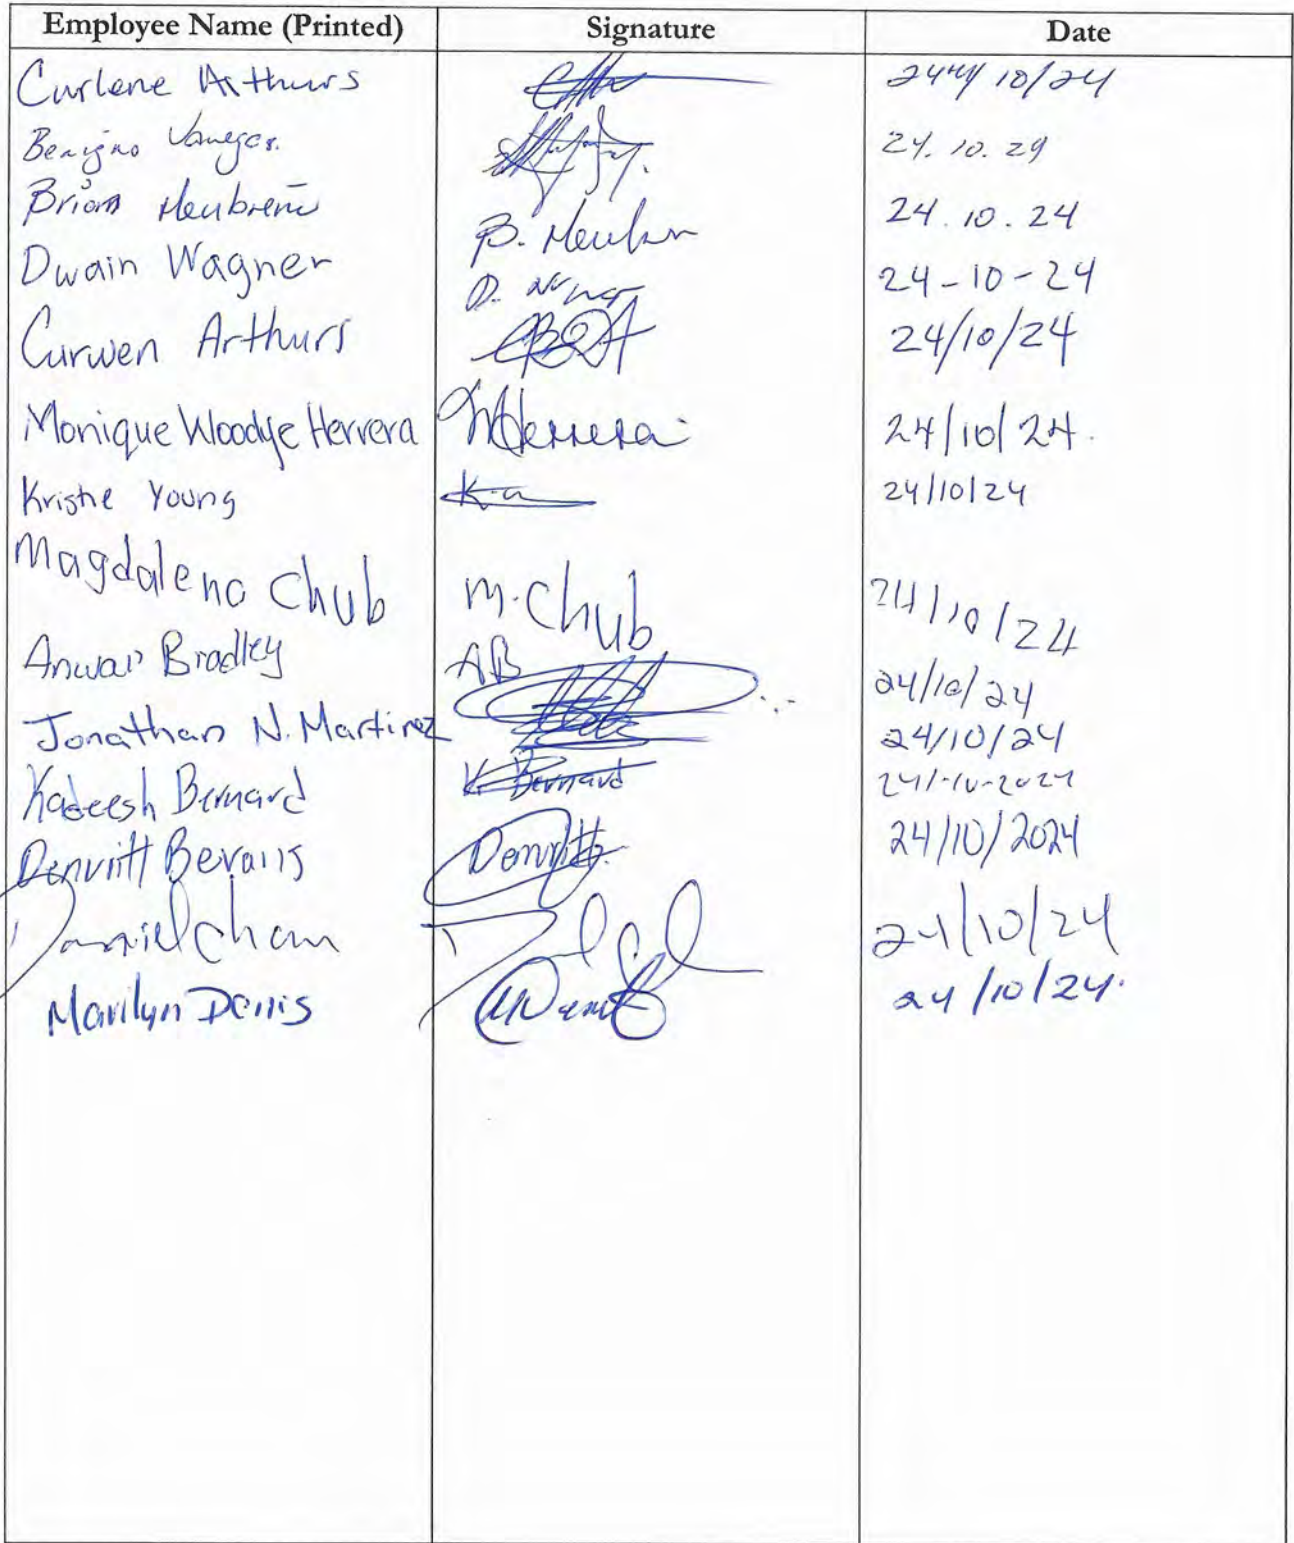 Employee Name (Printed) Signature Date
Curlene Arthurs 24th/10/24
Benigno Vanegas. 24.10.29
Brian 24.10.24
Dwain Wagner D. 24-10-24
Curwen Arthurs 24/10/24
Monique Woodye Herrera MHerrera 24/10/24.
Krishe Young 24/10/24
Magdalena Chub M. Chub 24/10/24
Anwar Bradley AB 24/10/24
Jonathan N. Martinez 24/10/24
Kadeesh Bernard K. Bernard 24-10-2024
Denvritt Bevans Denvritt 24/10/2024
Daniel Cham 24/10/24
Marilyn Denis 24/10/24.